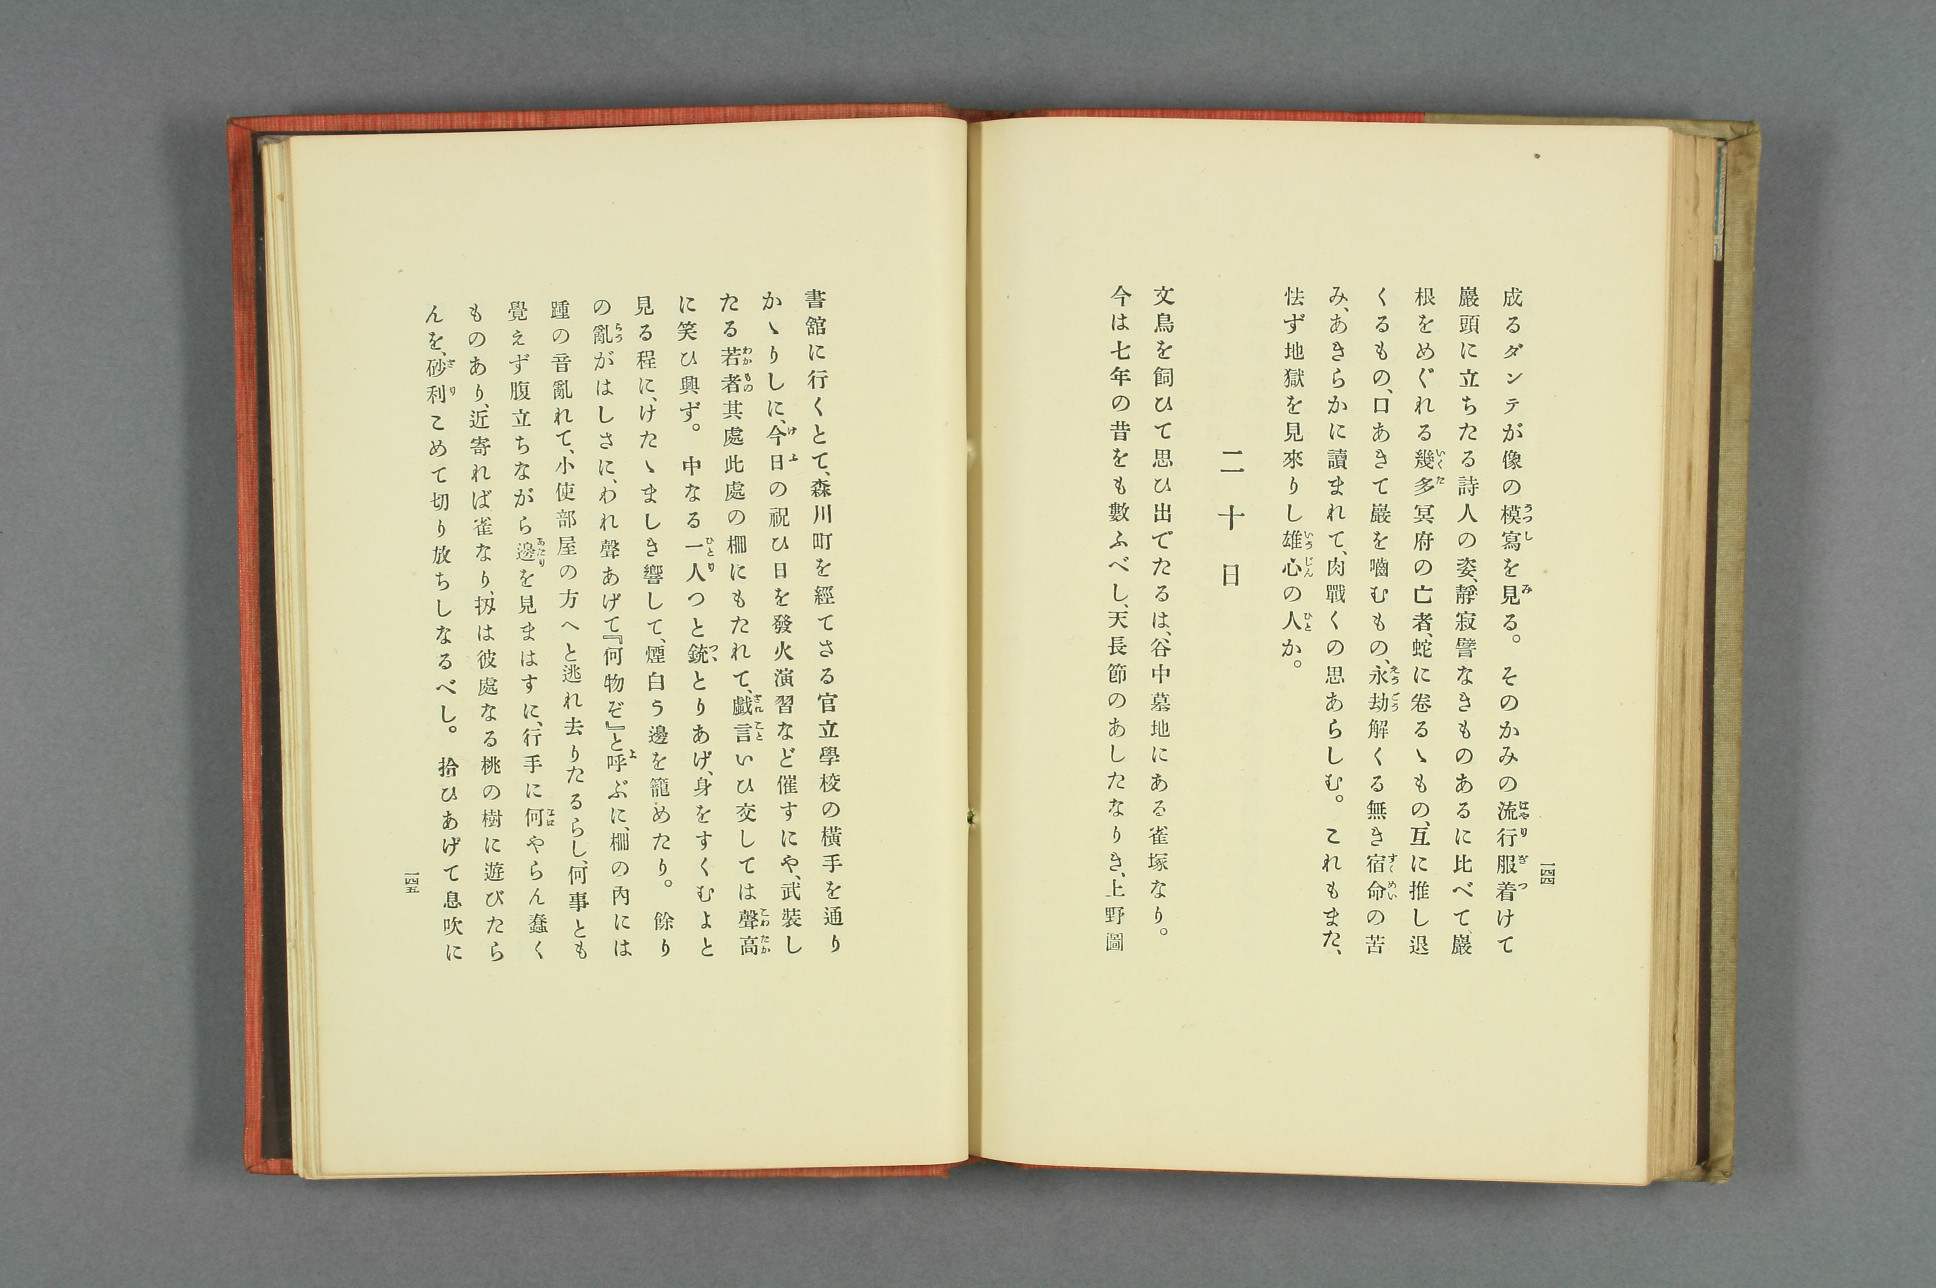 成るダンテが像の模寫を見る。そのかみの流行服着けて
巖頭に立ちたる詩人の姿、靜寂譬なきものあるに比べて、巖
根をめぐれる幾多冥府の亡者、蛇に卷るゝもの、互に推し退
くるもの、口あきて巖を嚙むもの、永劫解くる無き宿命の苦
み、あきらかに讀まれて、肉戰くの思あらしむ。これもまた、
怯ず地獄を見來りし雄心の人か。
二十日
文鳥を飼ひて思ひ出でたるは、谷中墓地にある雀塚なり。
今は七年の昔をも數ふべし、天長節のあしたなりき、上野圖
一四四
書館に行くとて、森川町を經てさる官立學校の橫手を通り
かゝりしに、今日の祝ひ日を發火演習など催すにや、武裝し
たる若者其處此處の柵にもたれて、戲言いひ交しては聲高
に笑ひ興ず。中なる一人つと銃、とりあげ、身をすくむよと
見る程に、けたゝましき響して、煙白う邊を籠めたり。餘り
の亂がはしさに、われ聲あげて『何物ぞ』と呼ぶに、柵の內には
踵の音亂れて、小使部屋の方へと逃れ去りたるらし、何事とも
覺えず腹立ちながら邊を見まはすに、行手に何やらん蠢く
ものあり、近寄れば雀なり、扨は彼處なる桃の樹に遊びたら
んを、砂利こめて切り放ちしなるべし。拾ひあげて息吹に
一四五